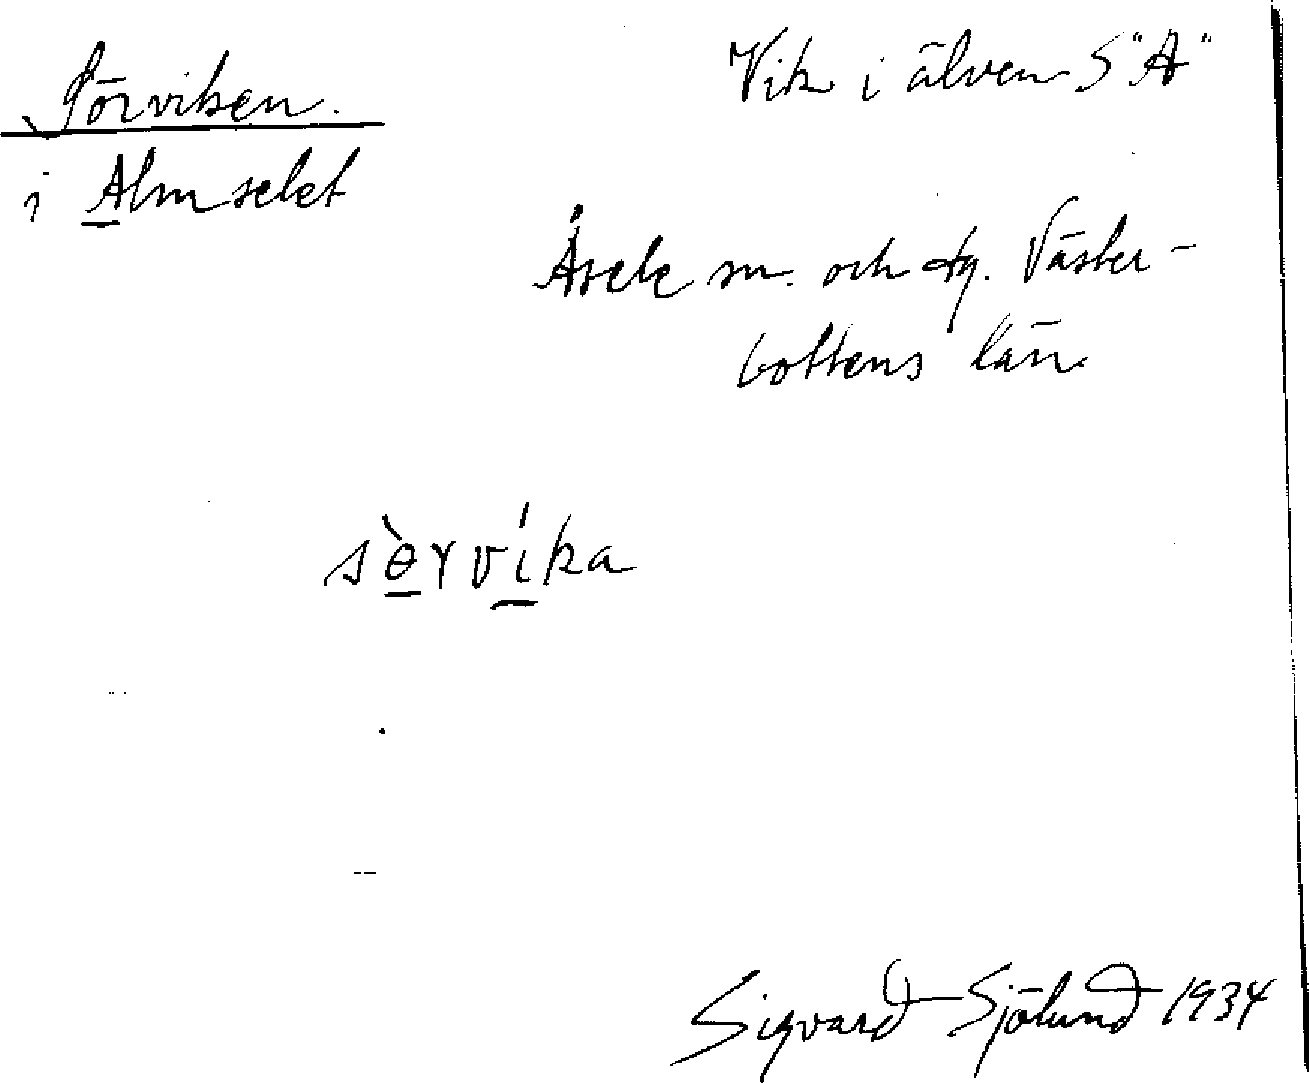 Sörviken.
i Almselet
Vik i älven S "A"
Åsele sn. och tg. Väster-
bottens län.
sèrvíka
Sigvard Sjölund 1934